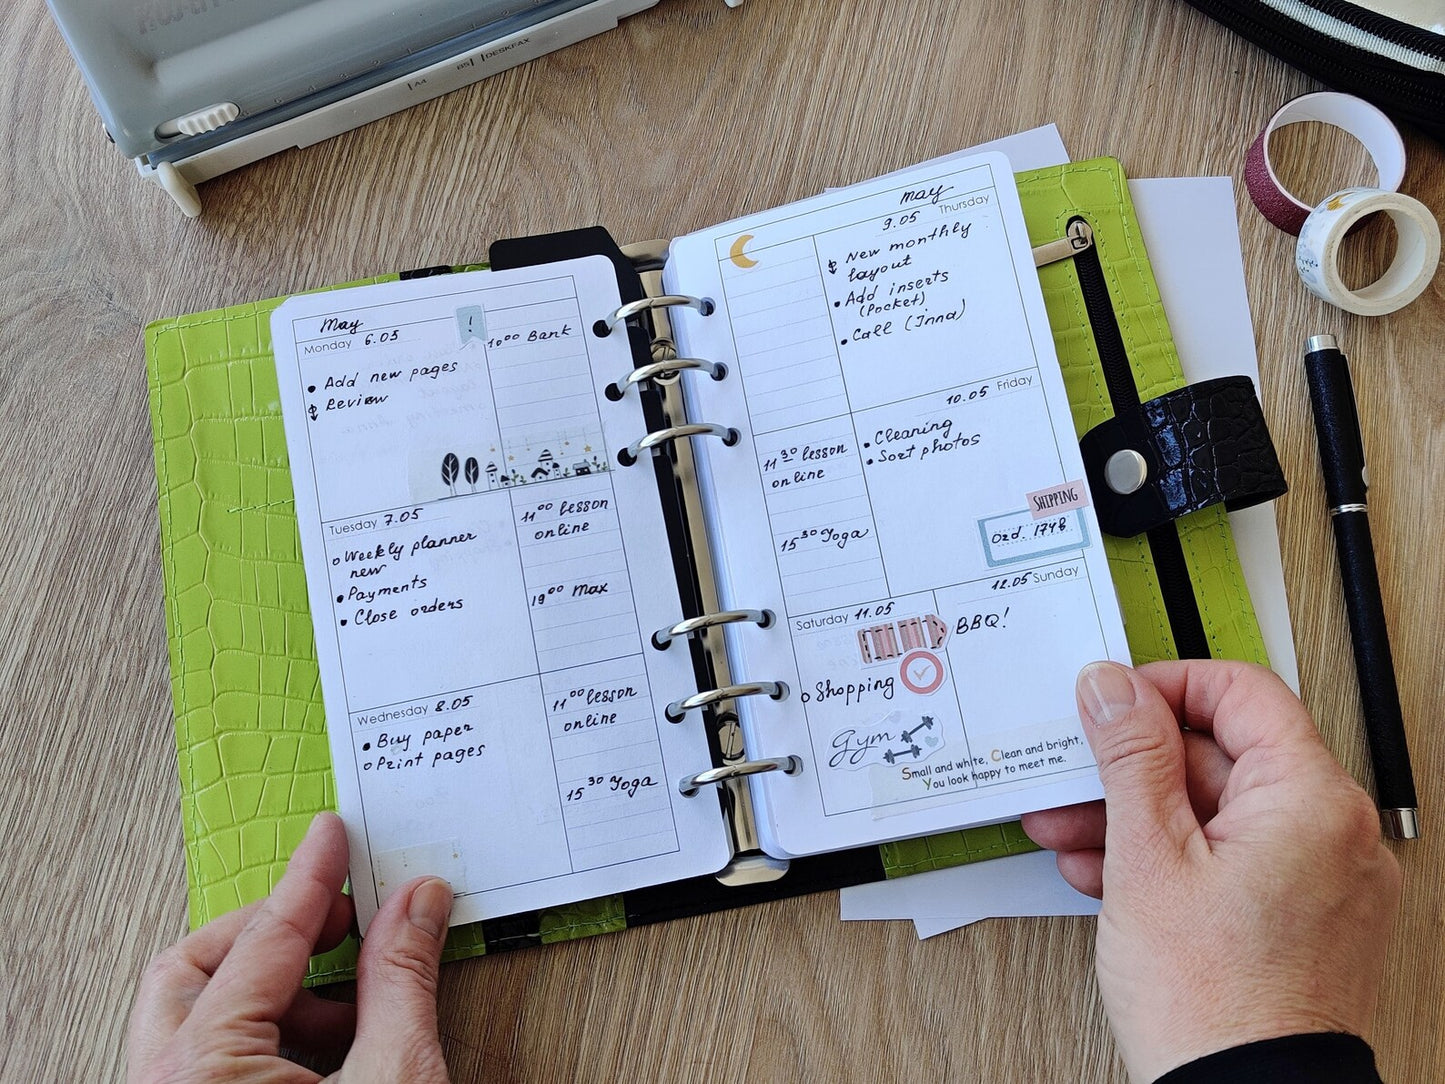 A4
B5
DESKFAX
May
Monday 6.05
!
10⁰⁰ Bank
• Add new pages
Review
Tuesday 7.05
o Weekly planner
new
• Payments
• Close orders
11⁰⁰ lesson
online
19⁰⁰ Max
Wednesday 8.05
• Buy paper
o Print pages
11⁰⁰ lesson
online
15³⁰ Yoga
May
9.05 Thursday
New monthly
layout
• Add inserts
(Pocket)
• Call (Inna)
10.05 Friday
11³⁰ lesson
online
15³⁰ Yoga
• Cleaning
• Sort photos
SHIPPING
Ord. 1748
Saturday 11.05
o Shopping
Gym
12.05 Sunday
BBQ!
Small and white, Clean and bright,
You look happy to meet me.